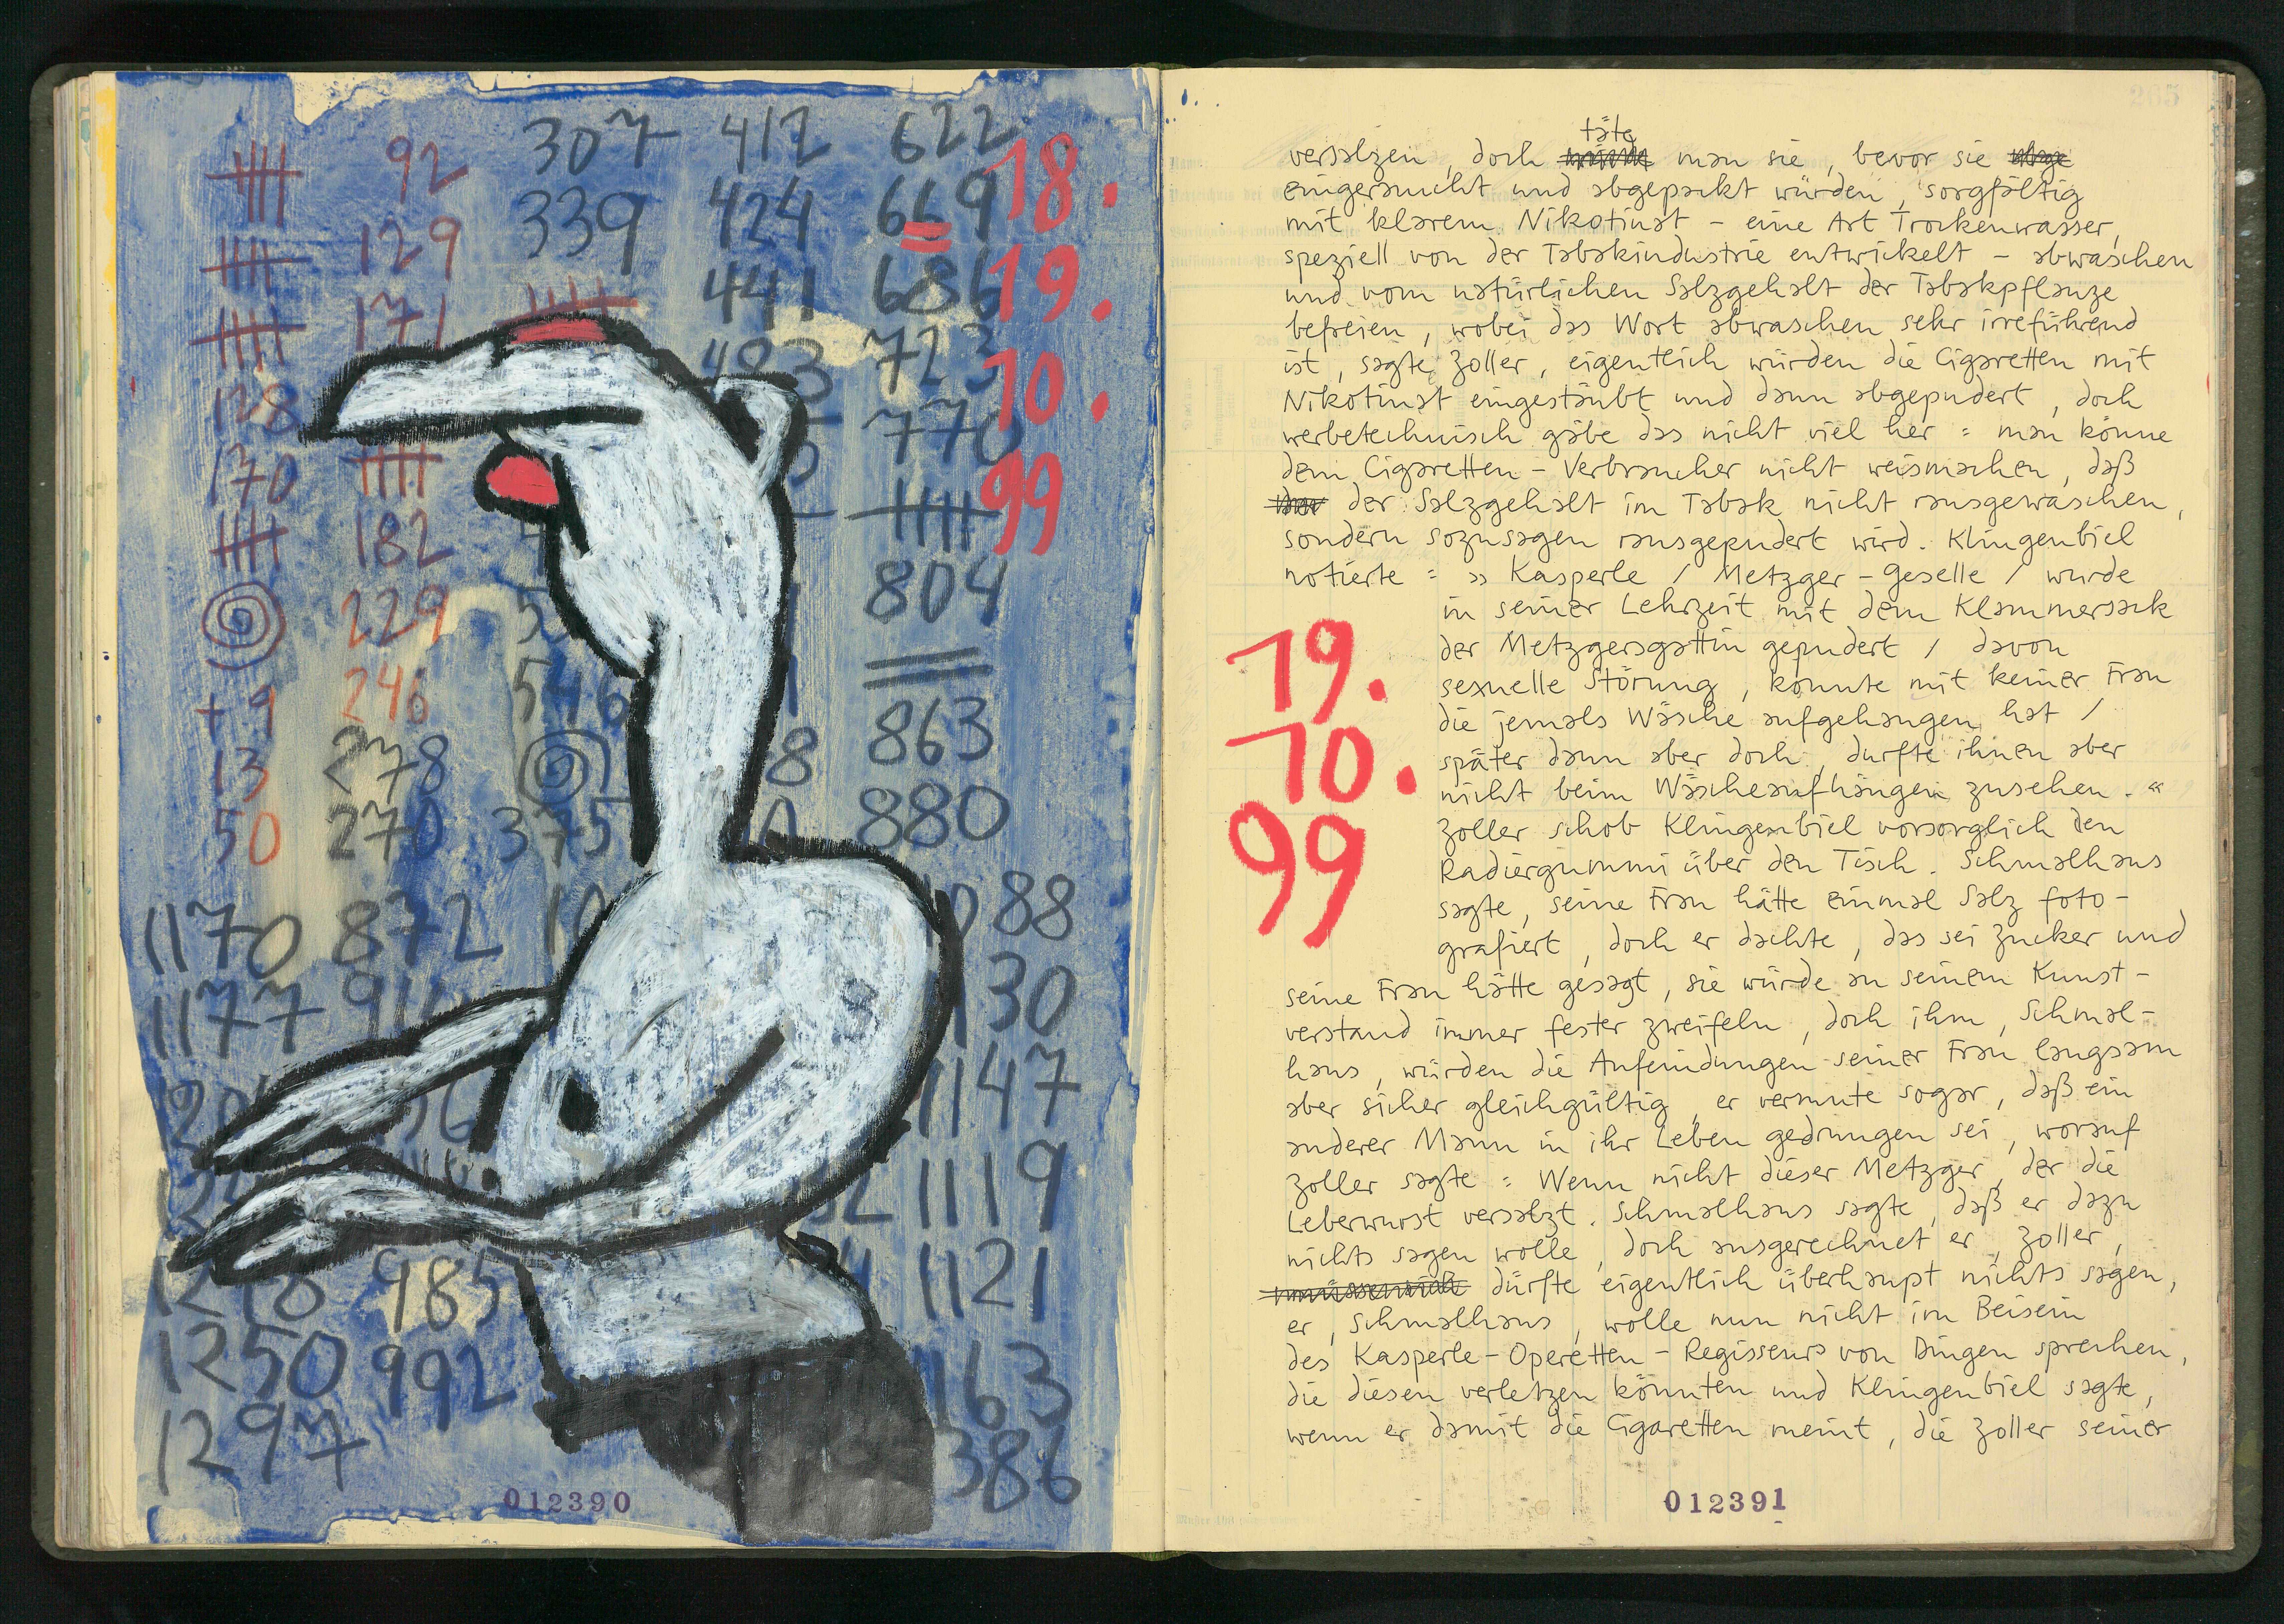 307 412 622
92
339 424 669
129
441 686
171
483 723
128
770
170
182
804
229
246
546
+9
863
278
13
880
50 270 375
18.
19.
10.
99
1170 872 1088
1177 30
1147
1119
985 1121
1250 992 1163
1297 386
012390
265
täte
versalzen, doch man sie, bevor sie
eingeraucht und abgepackt würden, sorgfältig
mit klarem Nikotinat – eine Art Trockenwasser,
speziell von der Tabakindustrie entwickelt – abwaschen
und vom natürlichen Salzgehalt der Tabakpflanze
befreien, wobei das Wort abwaschen sehr irreführend
ist, sagte Zoller, eigentlich würden die Cigaretten mit
Nikotinat eingestäubt und dann abgepudert, doch
werbetechnisch gäbe das nicht viel her: man könne
dem Cigaretten-Verbraucher nicht weismachen, daß
der Salzgehalt im Tabak nicht rausgewaschen,
sondern sozusagen rausgepudert wird. Klingenbiel
notierte: »Kasperle / Metzger-Geselle / wurde
in seiner Lehrzeit mit dem Klammersack
der Metzgersgattin gepudert / davon
sexuelle Störung, konnte mit keiner Frau
die jemals Wäsche aufgehangen hat /
später dann aber doch, durfte ihnen aber
nicht beim Wäscheaufhängen zusehen.«
19.
10.
99
Zoller schob Klingenbiel vorsorglich den
Radiergummi über den Tisch. Schmalhaus
sagte, seine Frau hätte einmal Salz foto-
grafiert, doch er dachte, das sei Zucker und
seine Frau hätte gesagt, sie würde an seinem Kunst-
verstand immer fester zweifeln, doch ihm, Schmal-
haus, würden die Anfeindungen seiner Frau langsam
aber sicher gleichgültig, er vermute sogar, daß ein
anderer Mann in ihr Leben gedrungen sei, worauf
Zoller sagte: Wenn nicht dieser Metzger, der die
Leberwurst versalzt. Schmalhaus sagte, daß er dazu
nichts sagen wolle, doch ausgerechnet er, Zoller,
dürfte eigentlich überhaupt nichts sagen,
er, Schmalhaus, wolle nun nicht im Beisein
des Kasperle-Operetten-Regisseurs von Dingen sprechen,
die diesen verletzen könnten und Klingenbiel sagte,
wenn er damit die Cigaretten meint, die Zoller seiner
012391